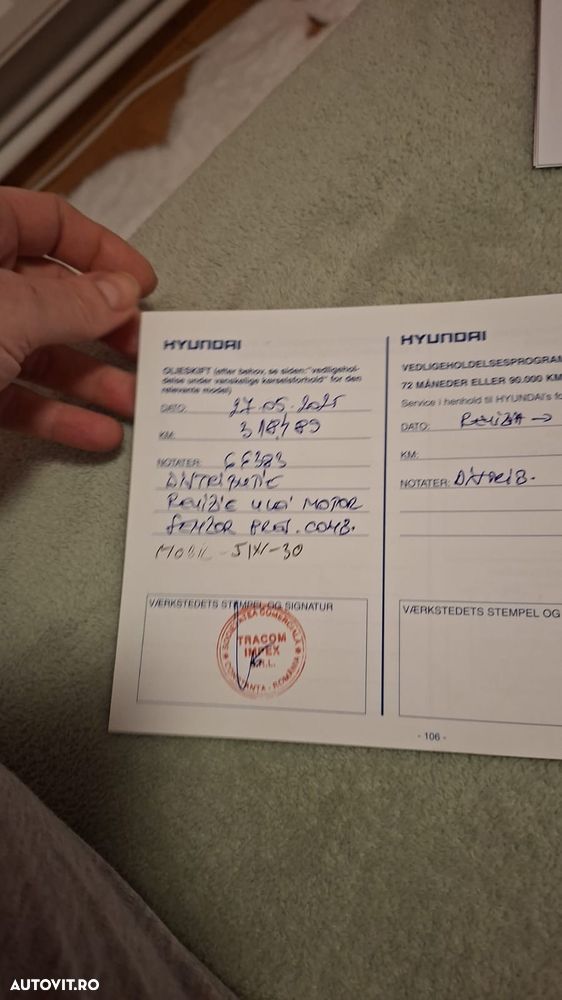 HYUNDAI
OLJESKIFT (efter behov, se siden: "vedligehol-
delse under vanskelige kørselsforhold" for den
relevante model)
DATO: 27.05.2025
KM: 318789
NOTATER:
DISTRIBUTIE
REVIZIE ULEI MOTOR
SENZOR PRES. COMB.
MOBIL - 5W-30
VÆRKSTEDETS STEMPEL OG SIGNATUR
SOCIETATEA COMERCIALĂ
TRACOM
IMPEX
S.R.L.
CONSTANȚA - ROMÂNIA
HYUNDAI
VEDLIGEHOLDELSESPROGRAM
72 MÅNEDER ELLER 90.000 KM
Service i henhold til HYUNDAI's
DATO: REVIZIA →
KM:
NOTATER: DISTRIB.
VÆRKSTEDETS STEMPEL OG
- 106 -
AUTOVIT.RO